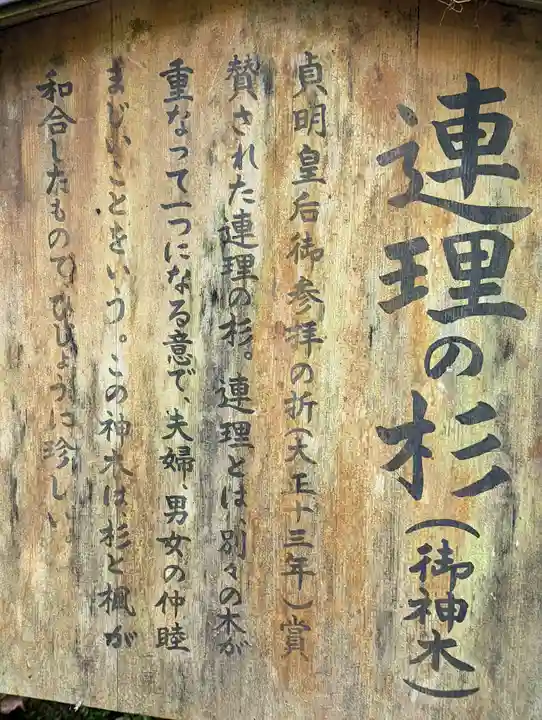 連理の杉(御神木)
貞明皇后御参拝の折(大正十三年)賞
賛された連理の杉。連理とは、別々の木が
重なって一つになる意で、夫婦、男女の仲睦
まじいことをいう。この神木は、杉と楓が
和合したもので、ひじょうに珍しい。